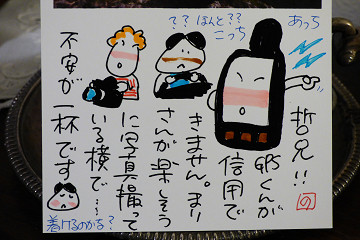 あっち
？？ほんと？？
こっち
哲兄!!
GPSくんが
信用で
きません。まり
さんが楽しそう
に写真撮って
いる横で…
不安が一杯です
着けるのかな？
の